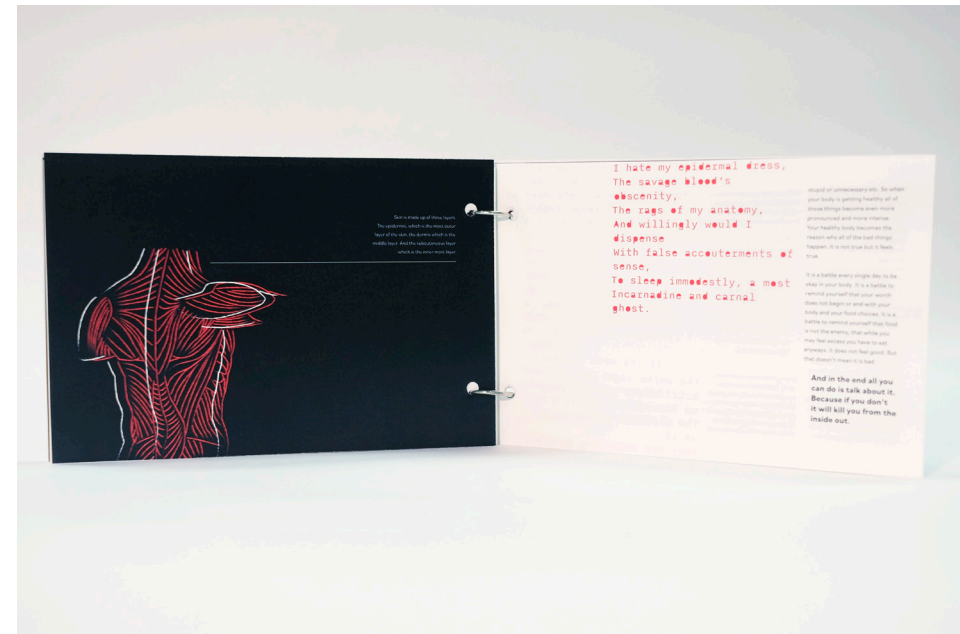 Skin is made up of three layers.
The epidermis, which is the most outer
layer of the skin, the dermis which is the
middle layer. And the subcutaneous layer
which is the inner most layer.
I hate my epidermal dress,
The savage blood's
obscenity,
The rags of my anatomy,
And willingly would I
dispense
With false accouterments of
sense,
To sleep immodestly, a most
Incarnadine and carnal
ghost.
stupid or unnecessary etc. So when
your body is getting healthy all of
those things become even more
pronounced and more intense.
Your healthy body becomes the
reason why all of the bad things
happen. It is not true but it feels
true.
It is a battle every single day to be
okay in your body. It is a battle to
remind yourself that your worth
does not begin or end with your
body and your food choices. It is a
battle to remind yourself that food
is not the enemy, that while you
may feel excess you have to eat
anyways. It does not feel good. But
that doesn't mean it is bad.
And in the end all you
can do is talk about it.
Because if you don't
it will kill you from the
inside out.